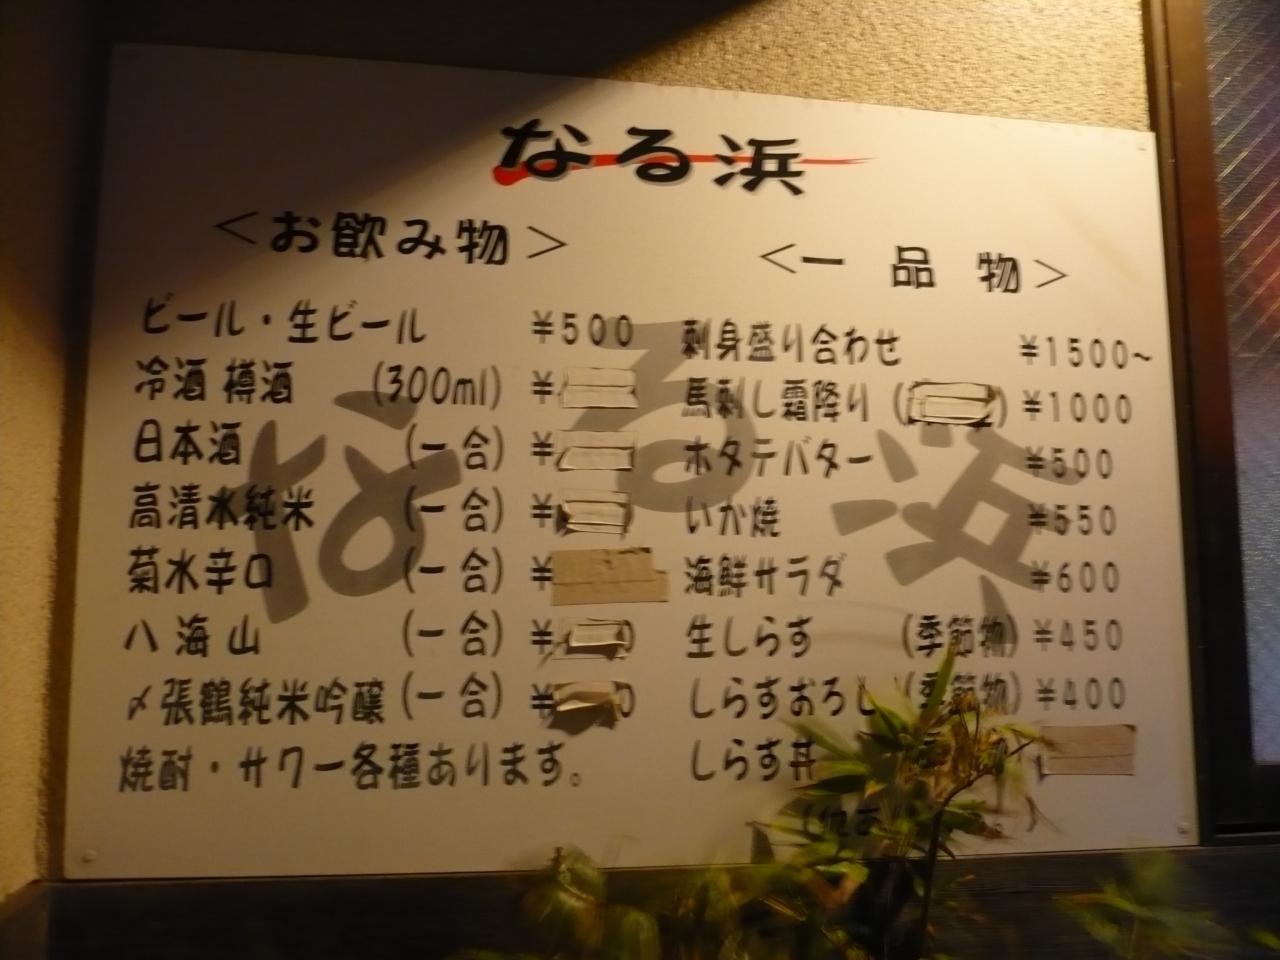 なる浜
＜お飲み物＞
ビール・生ビール ¥500
冷酒 樽酒 (300ml) ¥
日本酒 (一合) ¥
高清水純米 (一合) ¥
菊水辛口 (一合) ¥
八海山 (一合) ¥ 0
〆張鶴純米吟醸 (一合) ¥ 0
焼酎・サワー各種あります。
＜一品物＞
刺身盛り合わせ ¥1500~
馬刺し霜降り ( ) ¥1000
ホタテバター ¥500
いか焼 ¥550
海鮮サラダ ¥600
生しらす (季節物) ¥450
しらすおろし (季節物) ¥400
しらす丼
なる浜